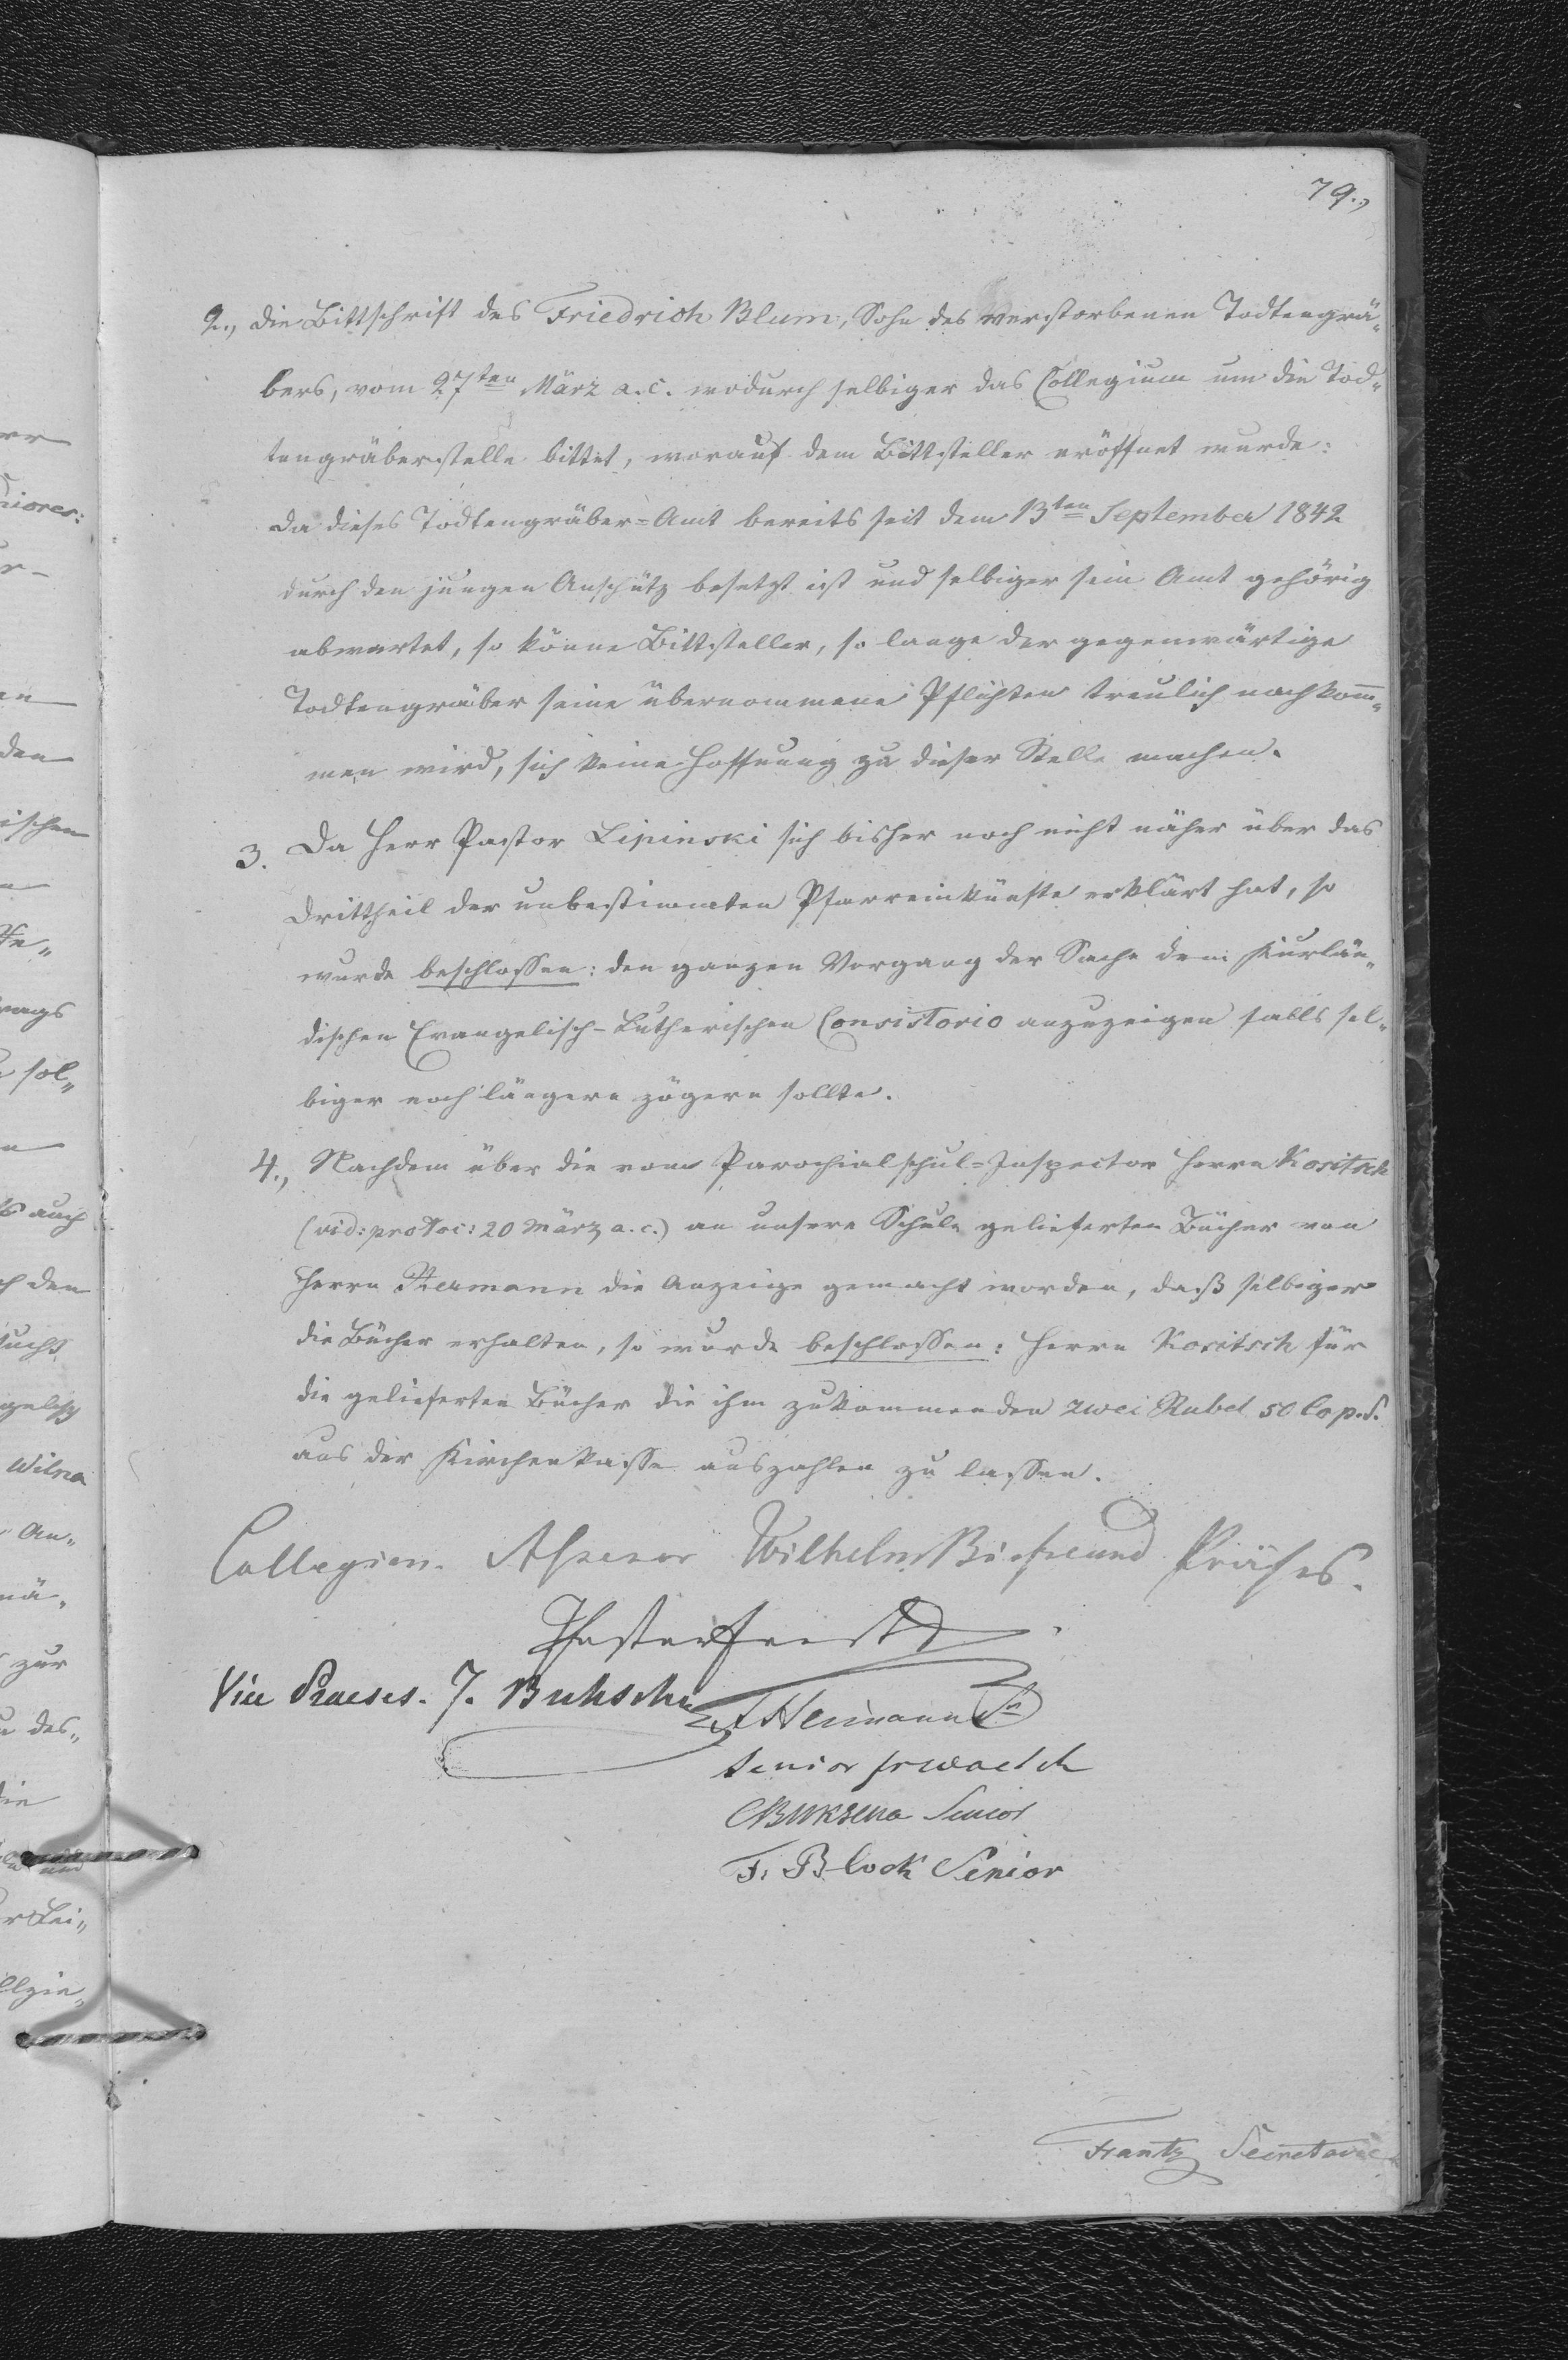 79.,
2., Die Bittschrift des Friedrich Blum, Sohn des verstorbenen Todtengrä„
bers, vom 27ten März a.c. wodurch selbiger das Collegium um die Tod„
tengräberstelle bittet, worauf dem Bittsteller eröffnet wurde:
Da dieses Todtengräber=Amt bereits seit dem 13ten September 1842
durch den jungen Anschütz besetzt ist und selbiger sein Amt gehörig
abwartet, so könne Bittsteller, so lange der gegenwärtige
Todtengräber seine übernommene Pflichten treulich nachkom̄„
men wird, sich keine Hoffnung zu dieser Stelle machen.
3. Da Herr Pastor Lipinski sich bisher noch nicht näher über das
Drittheil der unbestimmten Pfarreinkünfte erklärt hat, so
wurde beschlossen: den ganzen Vorgang der Sache dem Kurlän„
dischen Evangelisch-Lutherischen Consistorio anzuzeigen falls sel„
biger noch längere zögern sollte.
4., Nachdem über die vom Parochialschul=Inspector Herrn Kositsch
(vid: protoc: 20 März a.c.) an unsere Schule gelieferten Bücher von
Herrn Hermann die Anzeige gemacht worden, daß selbiger
die Bücher erhalten, so wurde beschlossen: Herrn Kositsch für
die gelieferten Bücher die ihm zukommenden zwei Rubel 50 Cop. S.
aus der Kirchenkasse auszahlen zu lassen.
Collegien. Assessor Wilhelm Präses.
Vice Praeses. J.
Hermann
Senior
Senior
F. Block Senior
Frantz Secretaire
niores:
den
ischen
sol„
auch
den
Wilna
An„
zur
des„
die
und